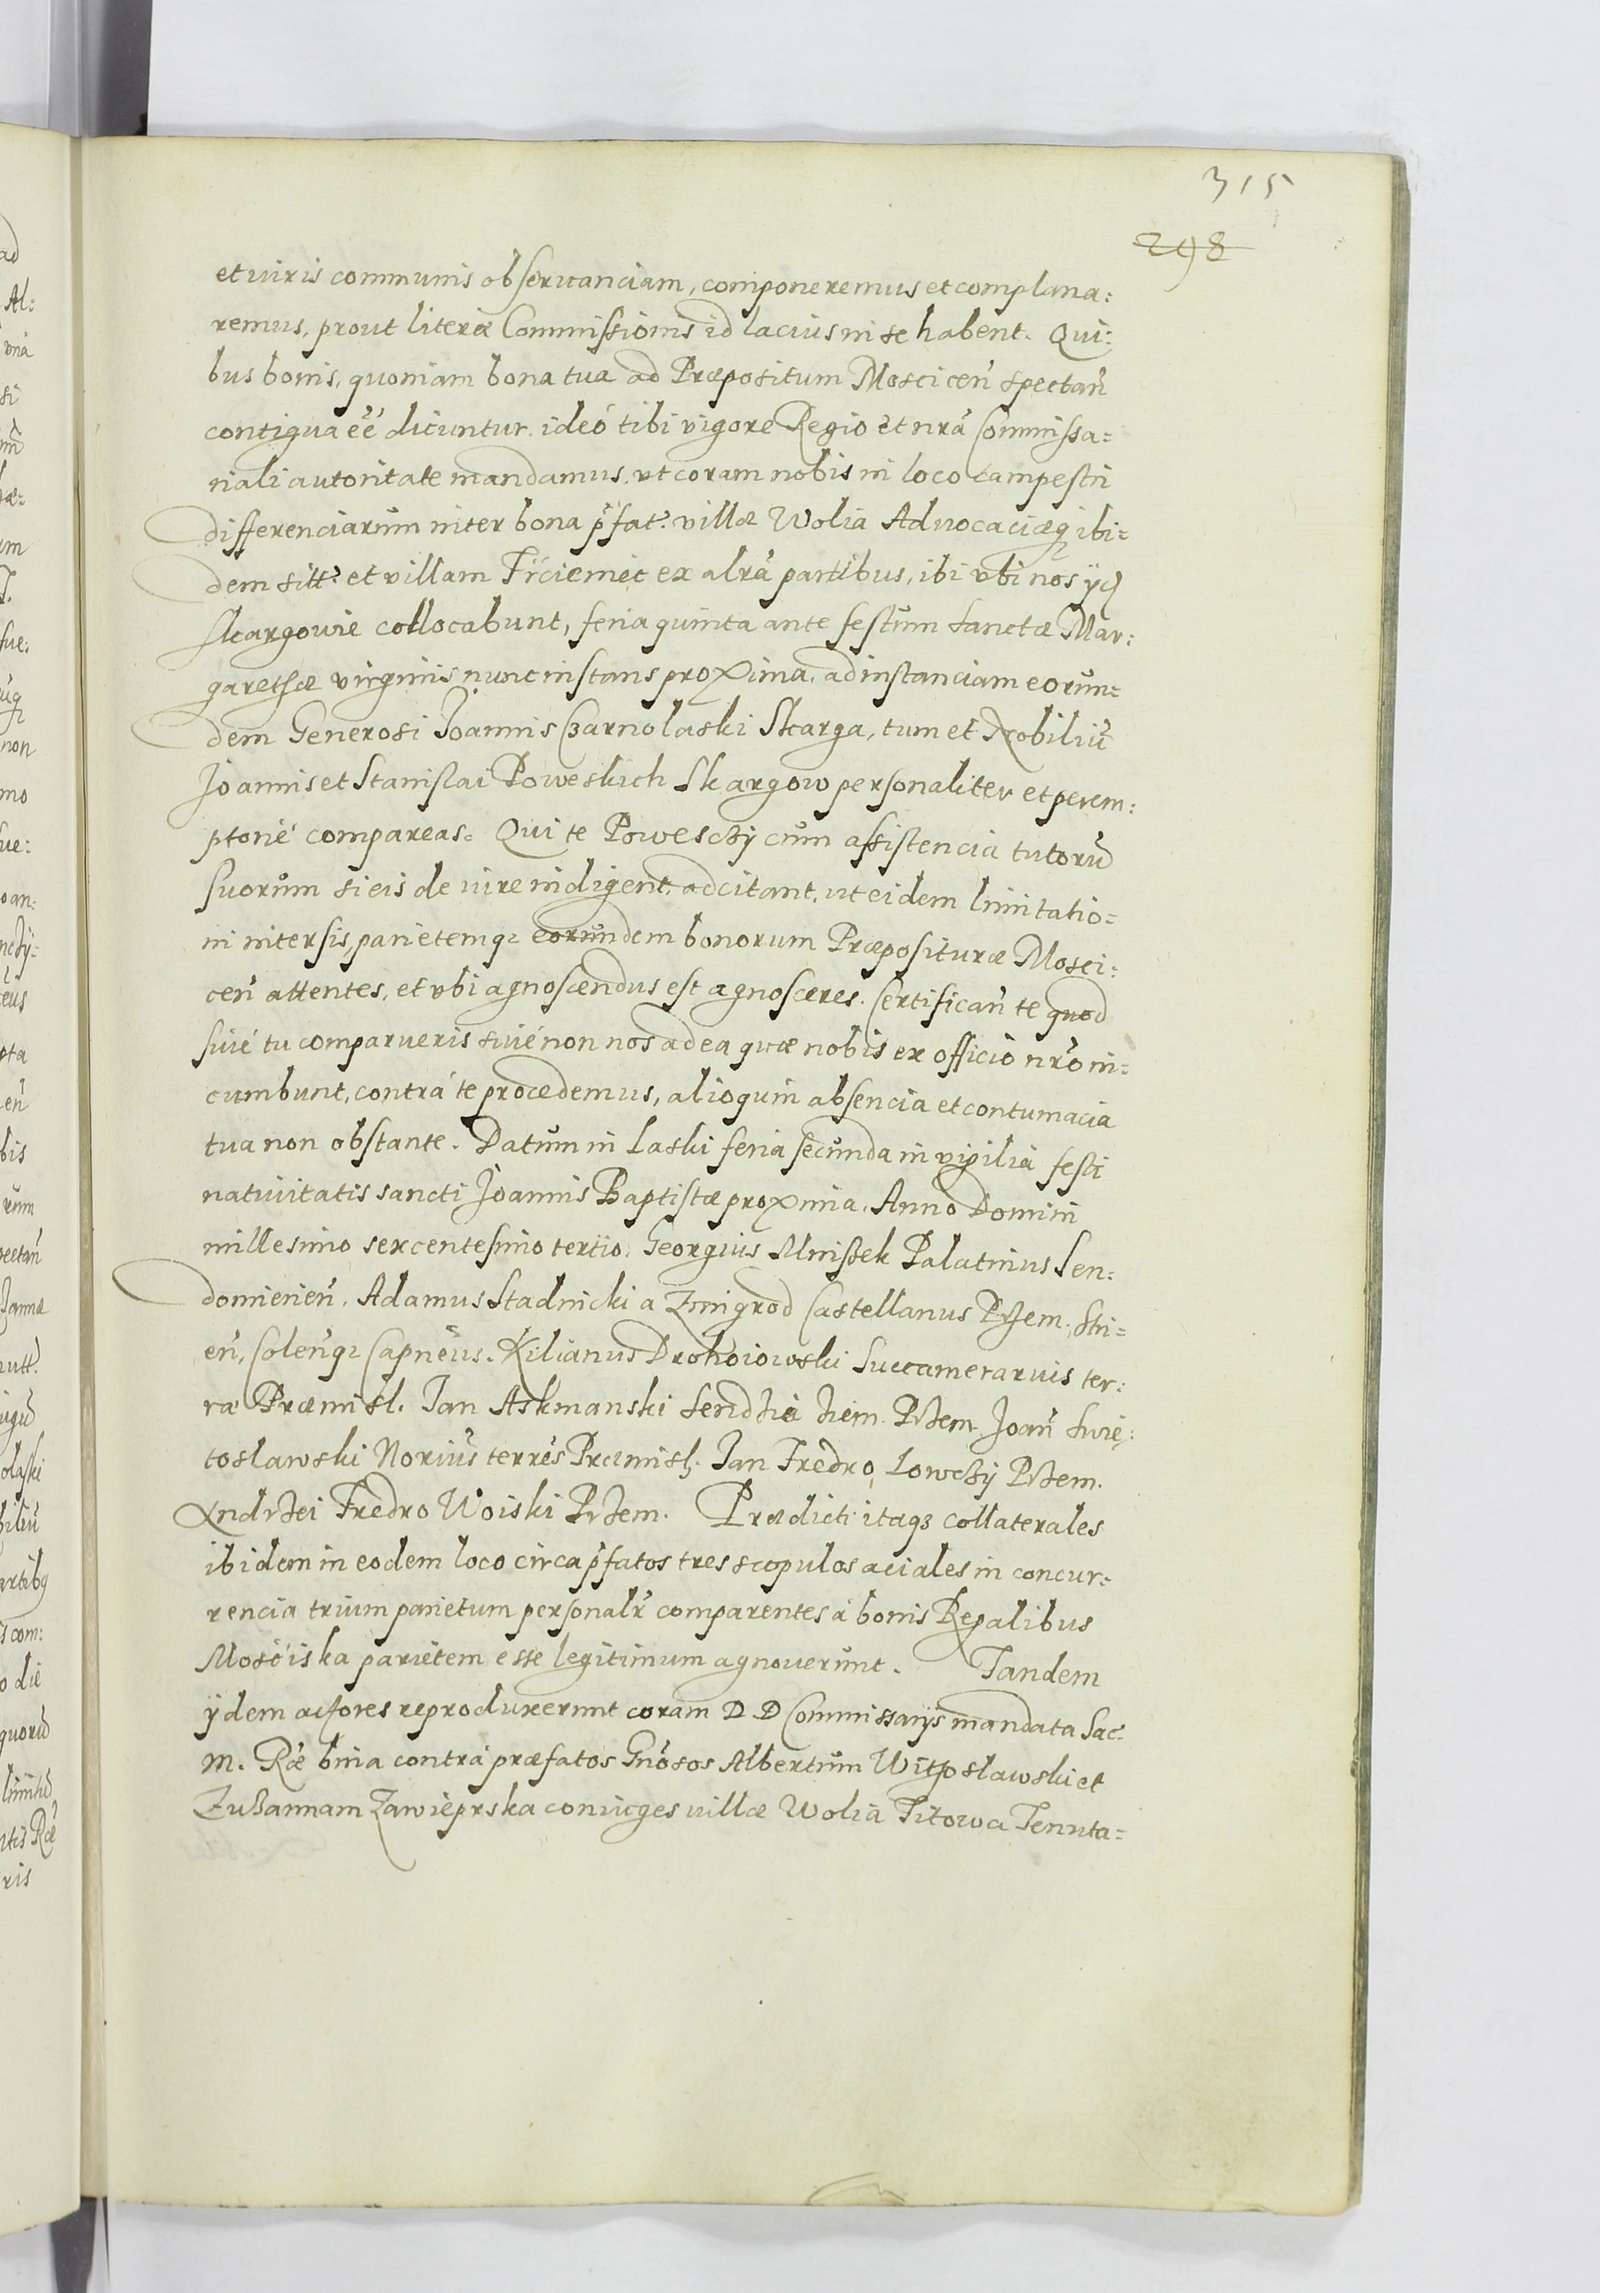 315
298
et iuris communis obseruanciam, componeremus et complana=
remus, prout literæ Commissionis id lacius in se habent. Qui=
bus bonis, quoniam bona tua ad Præpositum Moscicen̄ spectan̄
contigua eē dicuntur. ideó tibi vigore Regio et nrā Commissa=
riali autoritate mandamus, vt coram nobis in loco campestri
differenciarum inter bona p̄fat. villæ Wolia Aduocaciæq ibi=
dem sitt. et villam Trciemec ex alrā partibus, ibi vbi nos ijd
Skargowie collocabunt, feria quinta ante festum Sanctæ Mar=
garethæ virginis nunc instans proxima, ad instanciam eorun=
dem Generosi Joannis Czarnolaski Skarga, tum et Nobiliū
Joannis et Stanislai Poweskich Skargow personaliter et perem=
ptorié compareas. Qui te Poweschy cum assistencia tutorū
suorum si eis de iure indigent, adcitant, vt eidem limitatio=
ni intersis, parietemqz eorundem bonorum Præposituræ Mosci=
cen̄ attentes, et vbi agnoscendus est agnosceres. Certifican̄ te quod
siué tu comparueris siué non nos ad ea quæ nobis ex officio nrō in=
cumbunt, contrá te procedemus, alioquin absencia et contumacia
tua non obstante. Datum in Laski feria secunda in vigilia festi
natiuitatis sancti Joannis Baptistæ proxima. Anno Domini
millesimo sexcentesimo tertio. Georgius Mniszek Palatinus Sen=
domirien̄. Adamus Stadnicki a Zmigrod Castellanus Przem. Stri=
en̄, Colen̄qz Capneus. Kilianus Drohoiowski Succamerarius ter=
ræ Præmisl. Jan Askmanski Sendzia ziem. Przem. Joan̄ Swię=
toslawski Norius terrēs Præmisl. Jan Fredro Lowchy Przem.
Andrzei Fredro Woiski Przem. Prædicti itaqz collaterales
ibidem in eodem loco circa p̄fatos tres scopulos aciales in concur=
rencia trium parietum personalr̄ comparentes á bonis Regalibus
Mosciska parietem esse legitimum agnouerunt. Tandem
ijdem actores reproduxerunt coram D D Commissarijs mandata Sac.
M. Ræ bina contrá præfatos Gnōsos Albertum Witoslawski et
Zuzannam Zawieprska coniuges villæ Wolia Titowa Tenuta=